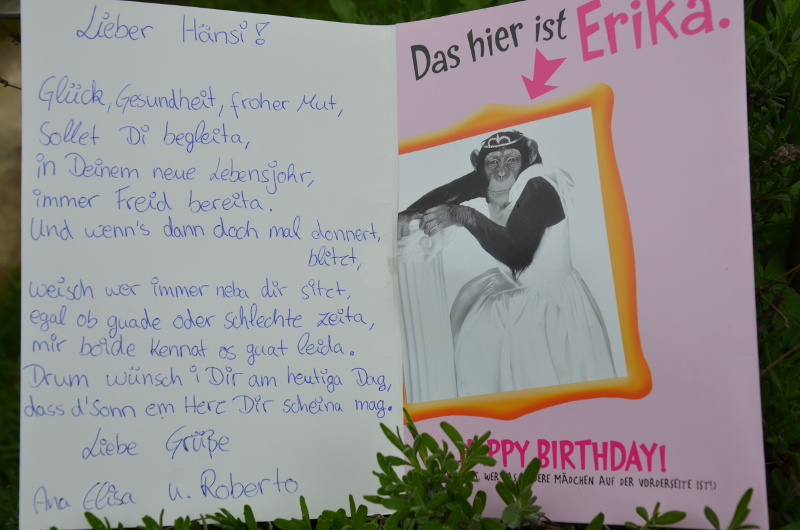 Lieber Hänsi!
Glück, Gesundheit, froher Mut,
Sollet Di begleita,
in Deinem neue Lebensjohr,
immer Freid bereita.
Und wenn's dann doch mal donnert,
blitzt,
weisch wer immer neba dir sitzt,
egal ob guade oder schlechte Zeita,
mir boide kennat os guat leida.
Drum wünsch i Dir am heutiga Dag,
dass d'Sonn em Herz Dir scheina mag.
Liebe Grüße
Ana Elisa u. Roberto
Das hier ist Erika.
HAPPY BIRTHDAY!
WER DAS ANDERE MÄDCHEN AUF DER VORDERSEITE IST!)